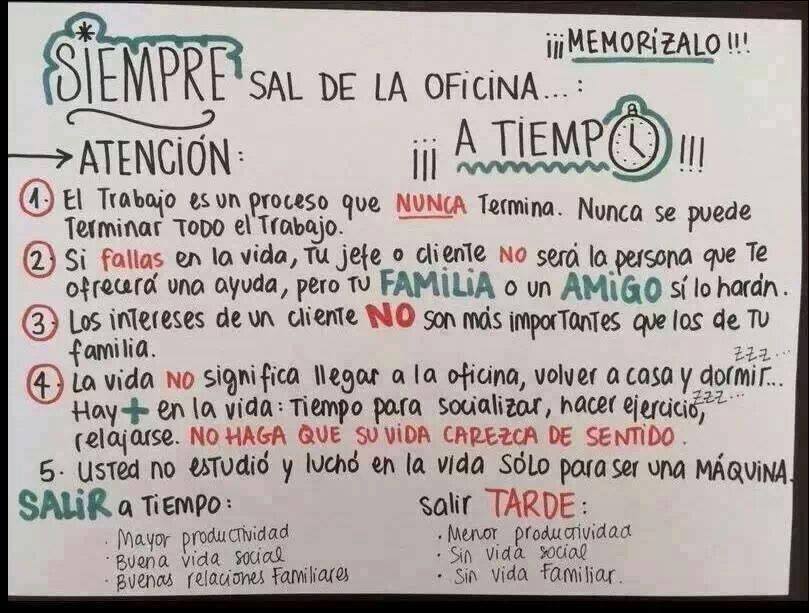 ¡¡¡MEMORÍZALO!!!
*SIEMPRE SAL DE LA OFICINA...:
→ATENCIÓN: ¡¡¡ A TIEMPO !!!
1. El Trabajo es un proceso que NUNCA Termina. Nunca se puede
Terminar TODO el Trabajo.
2. Si fallas en la vida, Tu jefe o cliente NO será la persona que Te
ofrecerá una ayuda, pero Tu FAMILIA o un AMIGO sí lo harán.
3. Los intereses de un cliente NO son más importantes que los de Tu
familia.
zzz...
4. La vida NO significa llegar a la oficina, volver a casa y dormir...
zzz...
Hay + en la vida: Tiempo para socializar, hacer ejercicio,
relajarse. NO HAGA QUE SU VIDA CAREZCA DE SENTIDO.
5. Usted no estudió y luchó en la vida SÓLO para ser una MÁQUINA.
SALIR a TIEMPO: salir TARDE:
· Mayor productividad · Menor productividad
· Buena vida social · Sin vida social
· Buenas relaciones Familiares · Sin vida Familiar.